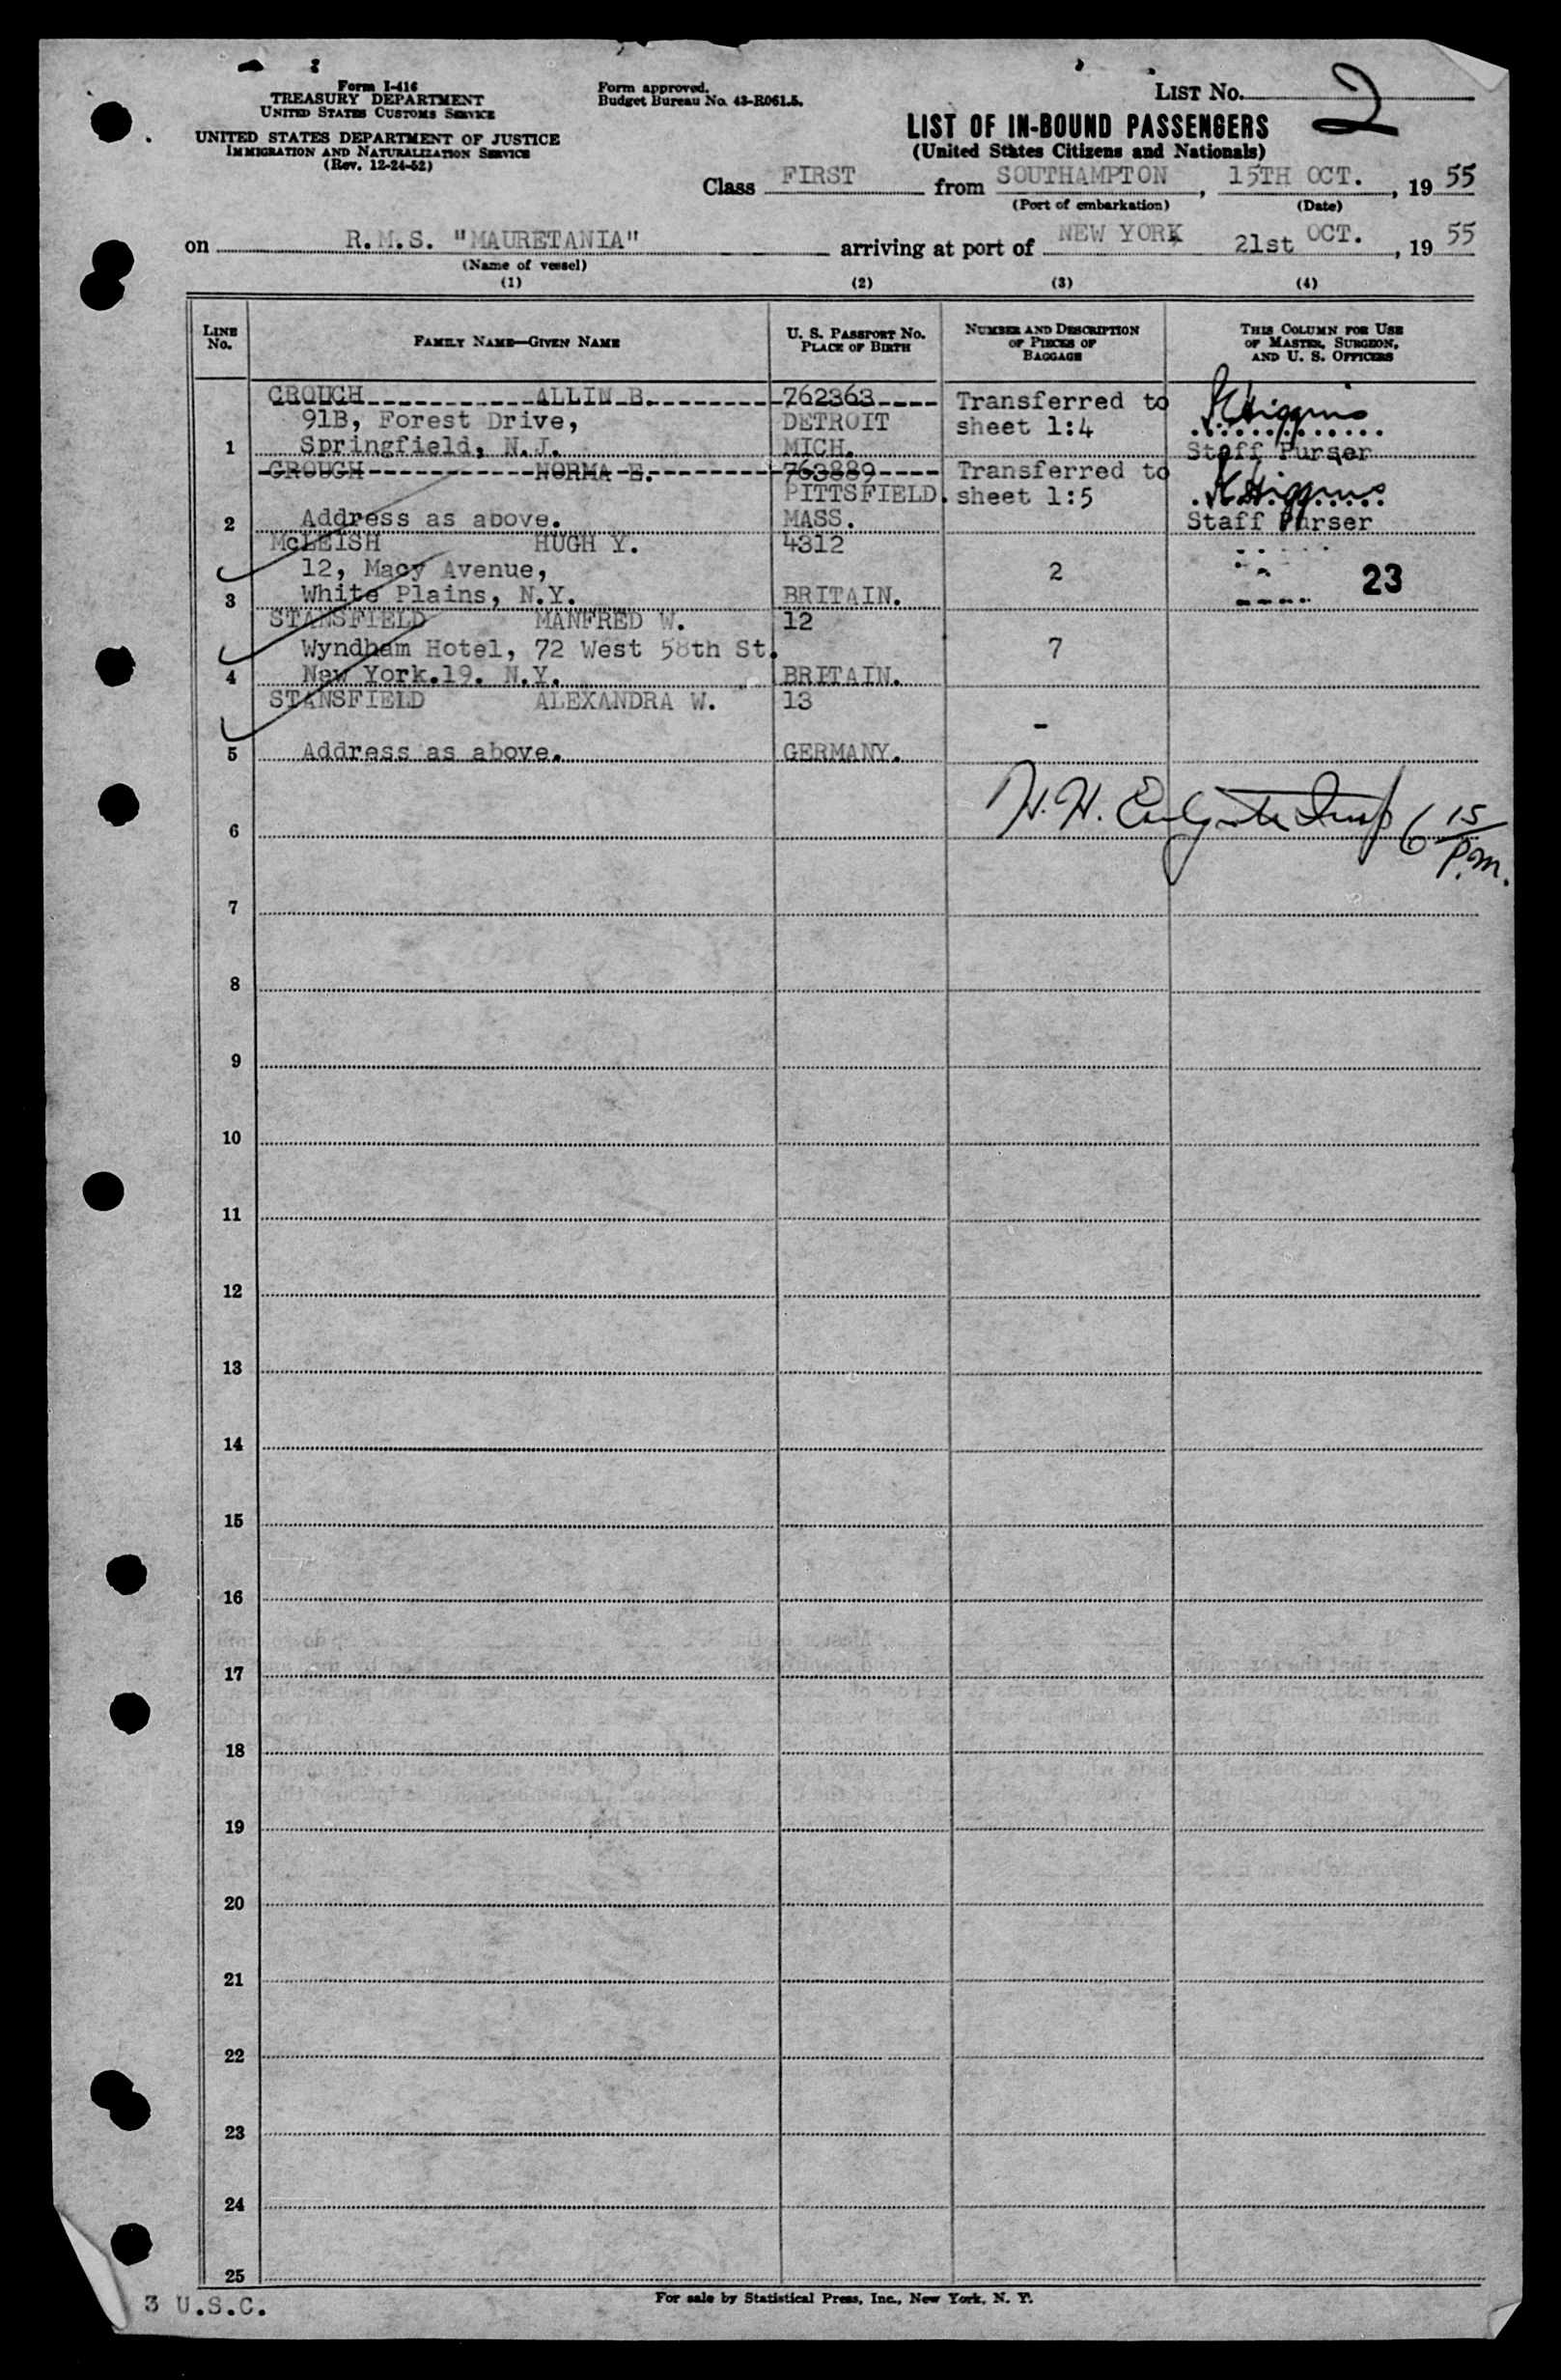 Form I-416
TREASURY DEPARTMENT
UNITED STATES CUSTOMS SERVICE
UNITED STATES DEPARTMENT OF JUSTICE
IMMIGRATION AND NATURALIZATION SERVICE
(Rev. 12-24-52)
Form approved.
Budget Bureau No. 43-R061.5.
LIST NO. 2
LIST OF IN-BOUND PASSENGERS
(United States Citizens and Nationals)
Class FIRST from SOUTHAMPTON, 15TH OCT., 19 55
(Port of embarkation) (Date)
on R.M.S. "MAURETANIA" arriving at port of NEW YORK 21st OCT., 19 55
(Name of vessel)
(1) (2) (3) (4)
LINE No. FAMILY NAME—GIVEN NAME U. S. PASSPORT NO. PLACE OF BIRTH NUMBER AND DESCRIPTION OF PIECES OF BAGGAGE THIS COLUMN FOR USE OF MASTER, SURGEON, AND U. S. OFFICERS
CROUCH ALLIN B. 762363 Transferred to Higgins
91B, Forest Drive, DETROIT sheet 1:4
1 Springfield, N.J. MICH. Staff Purser
CROUCH NORMA E. 763889 Transferred to Higgins
PITTSFIELD. sheet 1:5
2 Address as above. MASS. Staff Purser
McLEISH HUGH Y. 4312
12, Macy Avenue, 2 23
3 White Plains, N.Y. BRITAIN.
STANSFIELD MANFRED W. 12
Wyndham Hotel, 72 West 58th St. 7
4 New York.19. N.Y. BRITAIN.
STANSFIELD ALEXANDRA W. 13
-
5 Address as above. GERMANY.
H. H. Insp 6 15/P.m.
6
7
8
9
10
11
12
13
14
15
16
17
18
19
20
21
22
23
24
25
3 U.S.C.
For sale by Statistical Press, Inc., New York, N. Y.